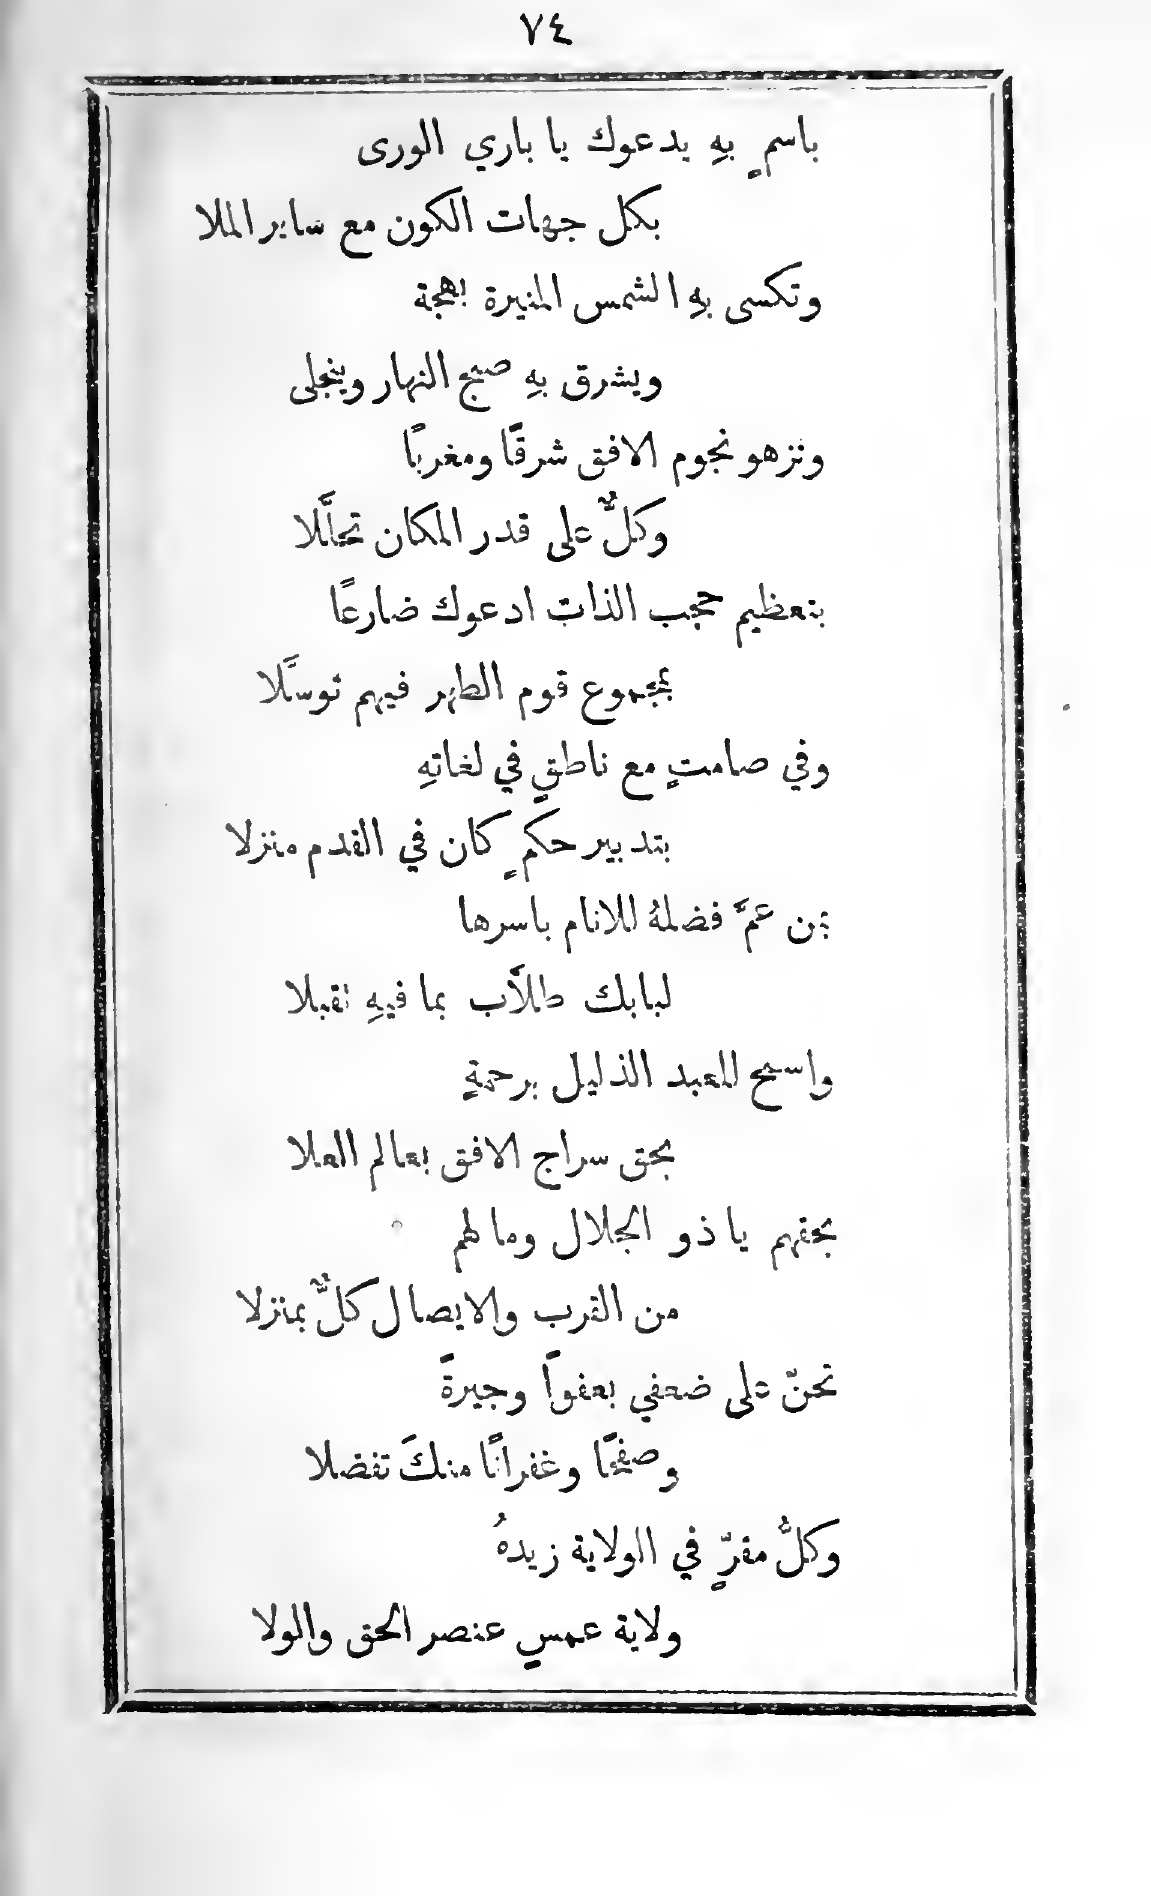 ٧٤
باسمٍ بهِ يدعوك يا باري الورى
بكل جهات الكون مع ساير الملا
وتكسى بهِ الشمس المنيرة بهجة
ويشرق بهِ صبح النهار وينجلى
وتزهو نجوم الافق شرقًا ومغربًا
وكلٌّ على قدر المكان تجلَّلا
بتعظيم حجب الذات ادعوك ضارعًا
بمجموع قوم الطهر فيهم توسَّلا
وفي صامتٍ مع ناطقٍ في لغاتهِ
بتدبير حكمٍ كان في القدم منزلا
بمن عمَّ فضلهُ للانام باسرها
لبابك طلاَّب بما فيهِ تقبلا
واسمح للعبد الذليل برحمةٍ
بحق سراج الافق بعالم العلا
بحقهم يا ذو الجلال وما لهم
من القرب والايصال كلٌّ بمنزلا
تحنّ على ضعفي بعفواً وجيرةً
وصفحًا وغفرانًا منكَ تفضلا
وكلُّ مقرٍّ في الولاية زيدهُ
ولاية عمسٍ عنصر الحق والولا